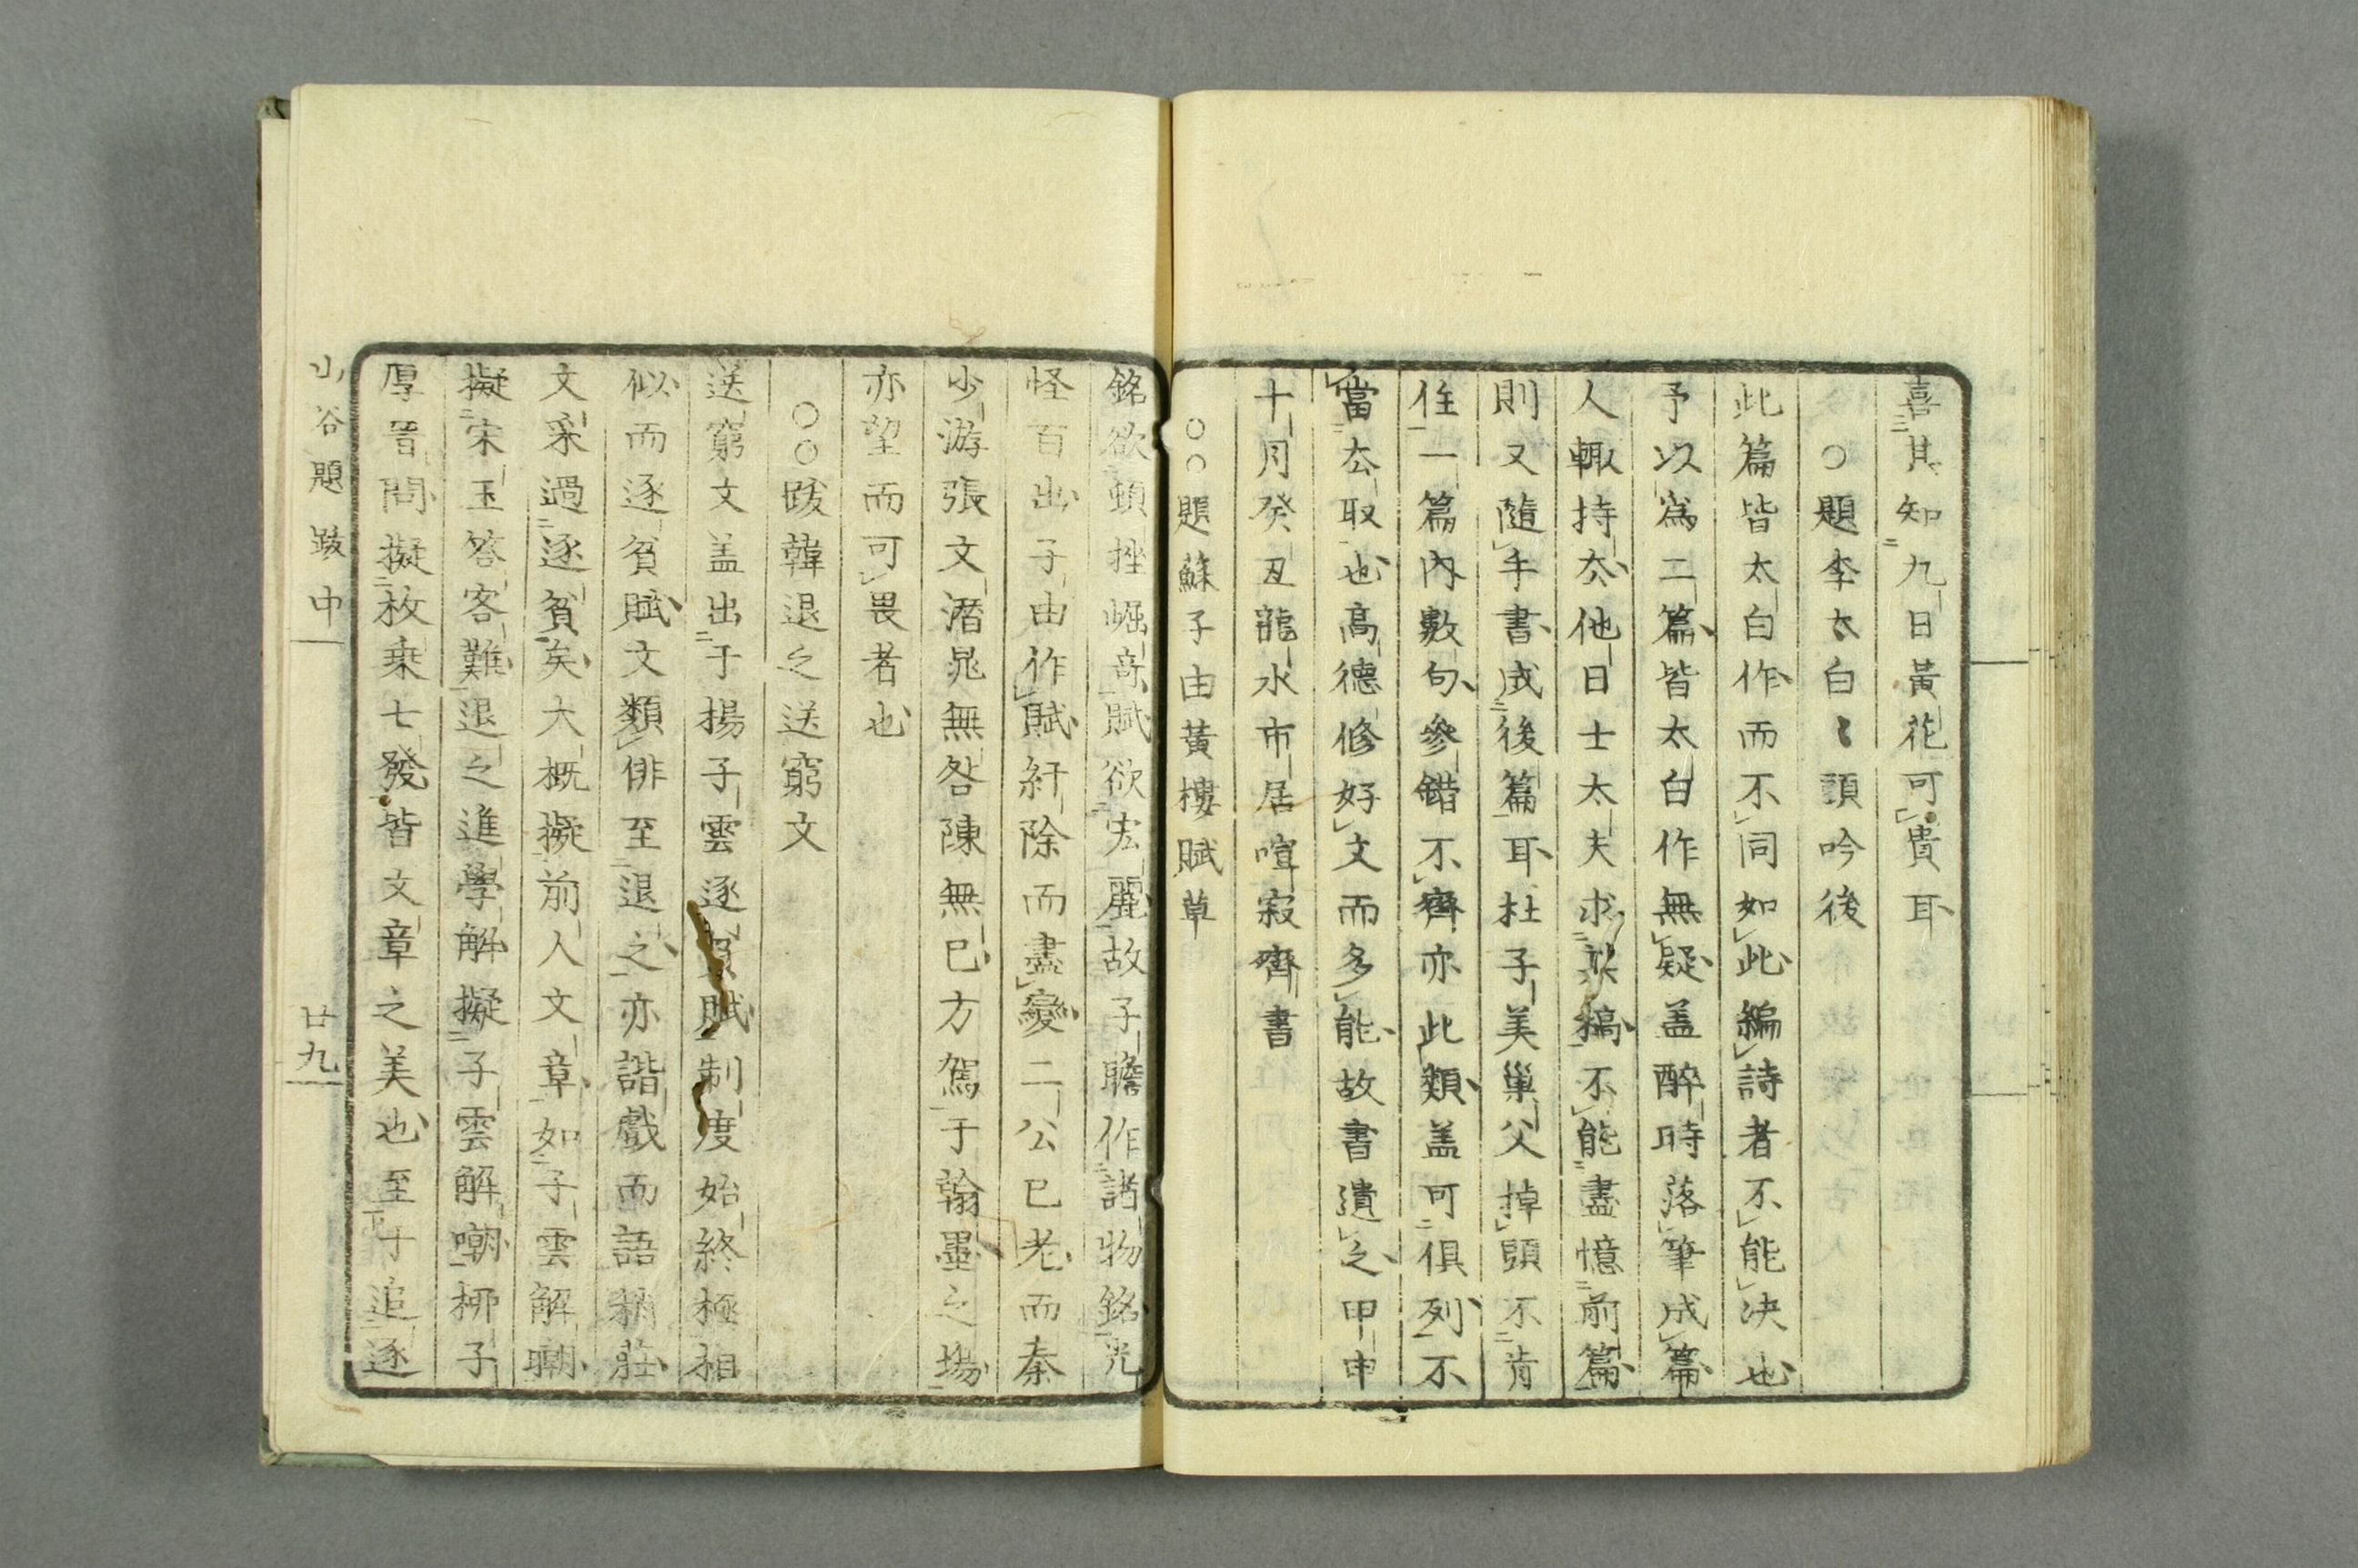 喜其知九日黃花可貴耳
○題李太白白頭吟後
此篇皆太白作而不同如此編詩者不能决也
予以為二篇皆太白作無疑盖醉時落筆成篇
人輙持去他日士大夫求其稿不能盡憶前篇
則又隨手書成後篇耳杜子美巢父掉頭不肯
住一篇内數句參錯不齊亦此類盖可俱列不
當去取也高德修好文而多能故書遺之甲申
十月癸丑龍水市居喧寂齊書
○○題蘇子由黃樓賦草
銘欲頓挫崛竒賦欲宏麗故子瞻作諸物銘光
怪百出子由作賦紆除而盡變二公已老而秦
少游張文潛晁無咎陳無已方駕于翰墨之塲
亦望而可畏者也
○○跋韓退之送窮文
送窮文盖出于揚子雲逐貧賦制度始終極相
似而逐貧賦文類俳至退之亦諧戲而語稍莊
文采過逐貧矣大概擬前人文章如子雲解嘲
擬宋玉答客難退之進學解擬子雲解嘲柳子
厚晋問擬枚乗七發皆文章之美也至于追逐
山谷題跋中
廿九